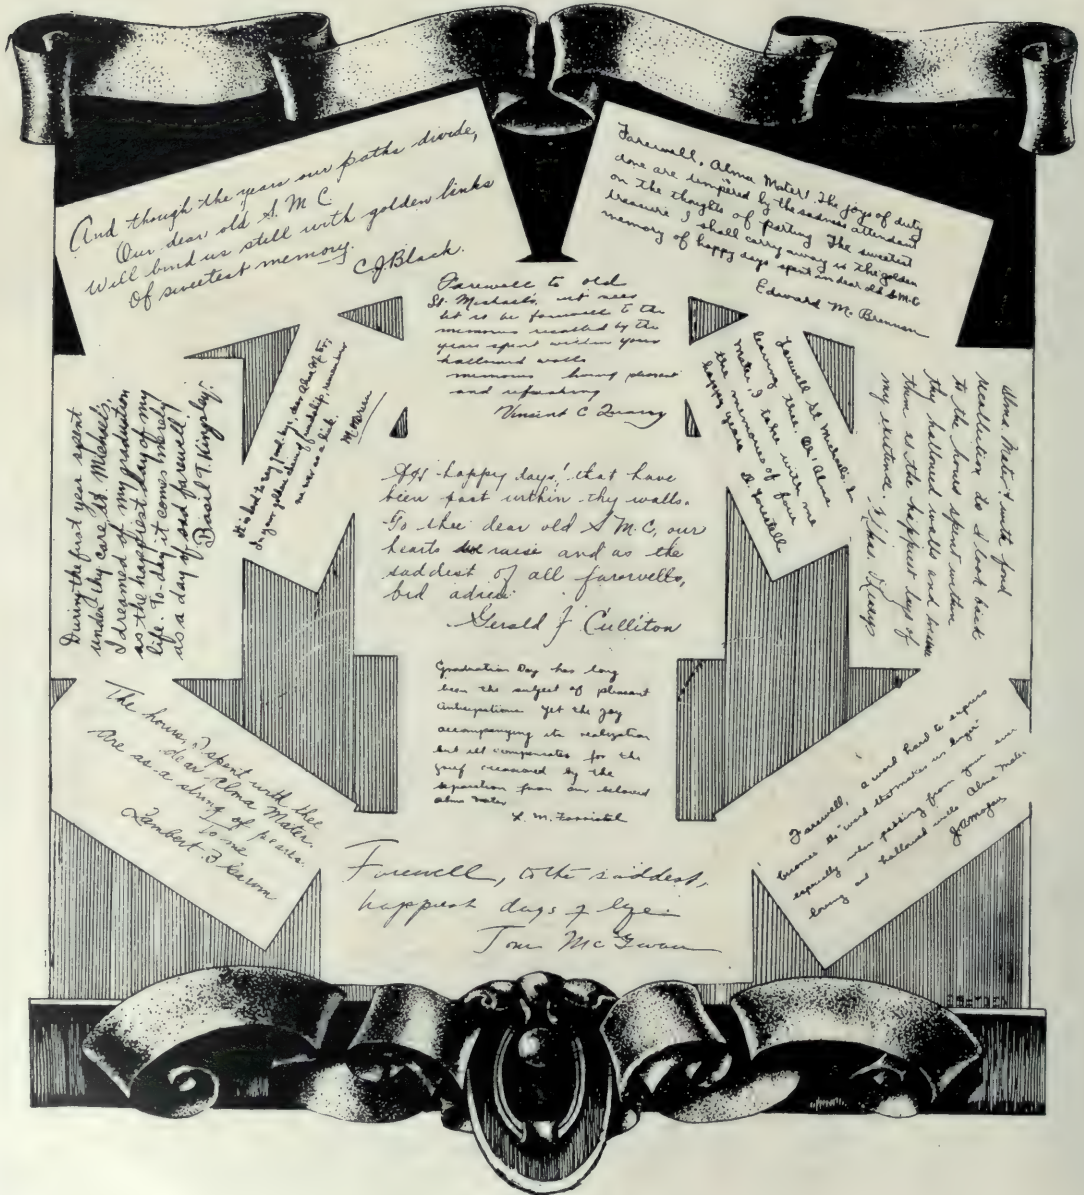 And though the years our paths divide,
Our dear old S. M C
Will bind us still with golden links
Of sweetest memory.
C J Black.
Farewell, Alma Mater! The joys of duty
done are tempered by the sadness attendant
on the thoughts of parting The sweetest
treasure I shall carry away is the golden
memory of happy days spent in dear old S. M. C
Edward M. Brennan
Farewell to old
St. Michael's,
let it be farewell to the
memories recalled by the
years spent within your
hallowed walls
memories pleasant
and refreshing
Vincent C
During the first year spent
under thy care St. Michael's,
I dreamed of my graduation
as the happiest day of my
life. To-day it comes merely
as a day of sad farewell,
Basil T. Kingsley.
It is hard to say good-bye, dear Alma Mater;
In your golden chain of friendship, remember
me was as a link.
Farewell St Michael's. In
leaving thee, Oh! Alma
Mater, I take with me
the memories of four
happy years
Alma Mater! with fond
recollection do I look back
to the hours spent within
thy hallowed walls and
them as the happiest days of
my existence.
happy days! that have
been past within thy walls.
To thee dear old S M. C, our
hearts raise and as the
saddest of all farewells,
bid adieu
Gerald J Culliton
Graduation Day has long
been the subject of pleasant
anticipation Yet the joy
accompanying its realization
but ill compensates for the
grief occasioned by the
separation from our beloved
alma mater
The hours, I spent with thee
dear Alma Mater
Are as a string of pearls
To me
Lambert
Farewell, a word hard to express
becomes the "word that makes us linger"
especially when passing from your ever
loving and hallowed walls Alma Mater.
Farewell, to the saddest,
happiest days of life.
Tom